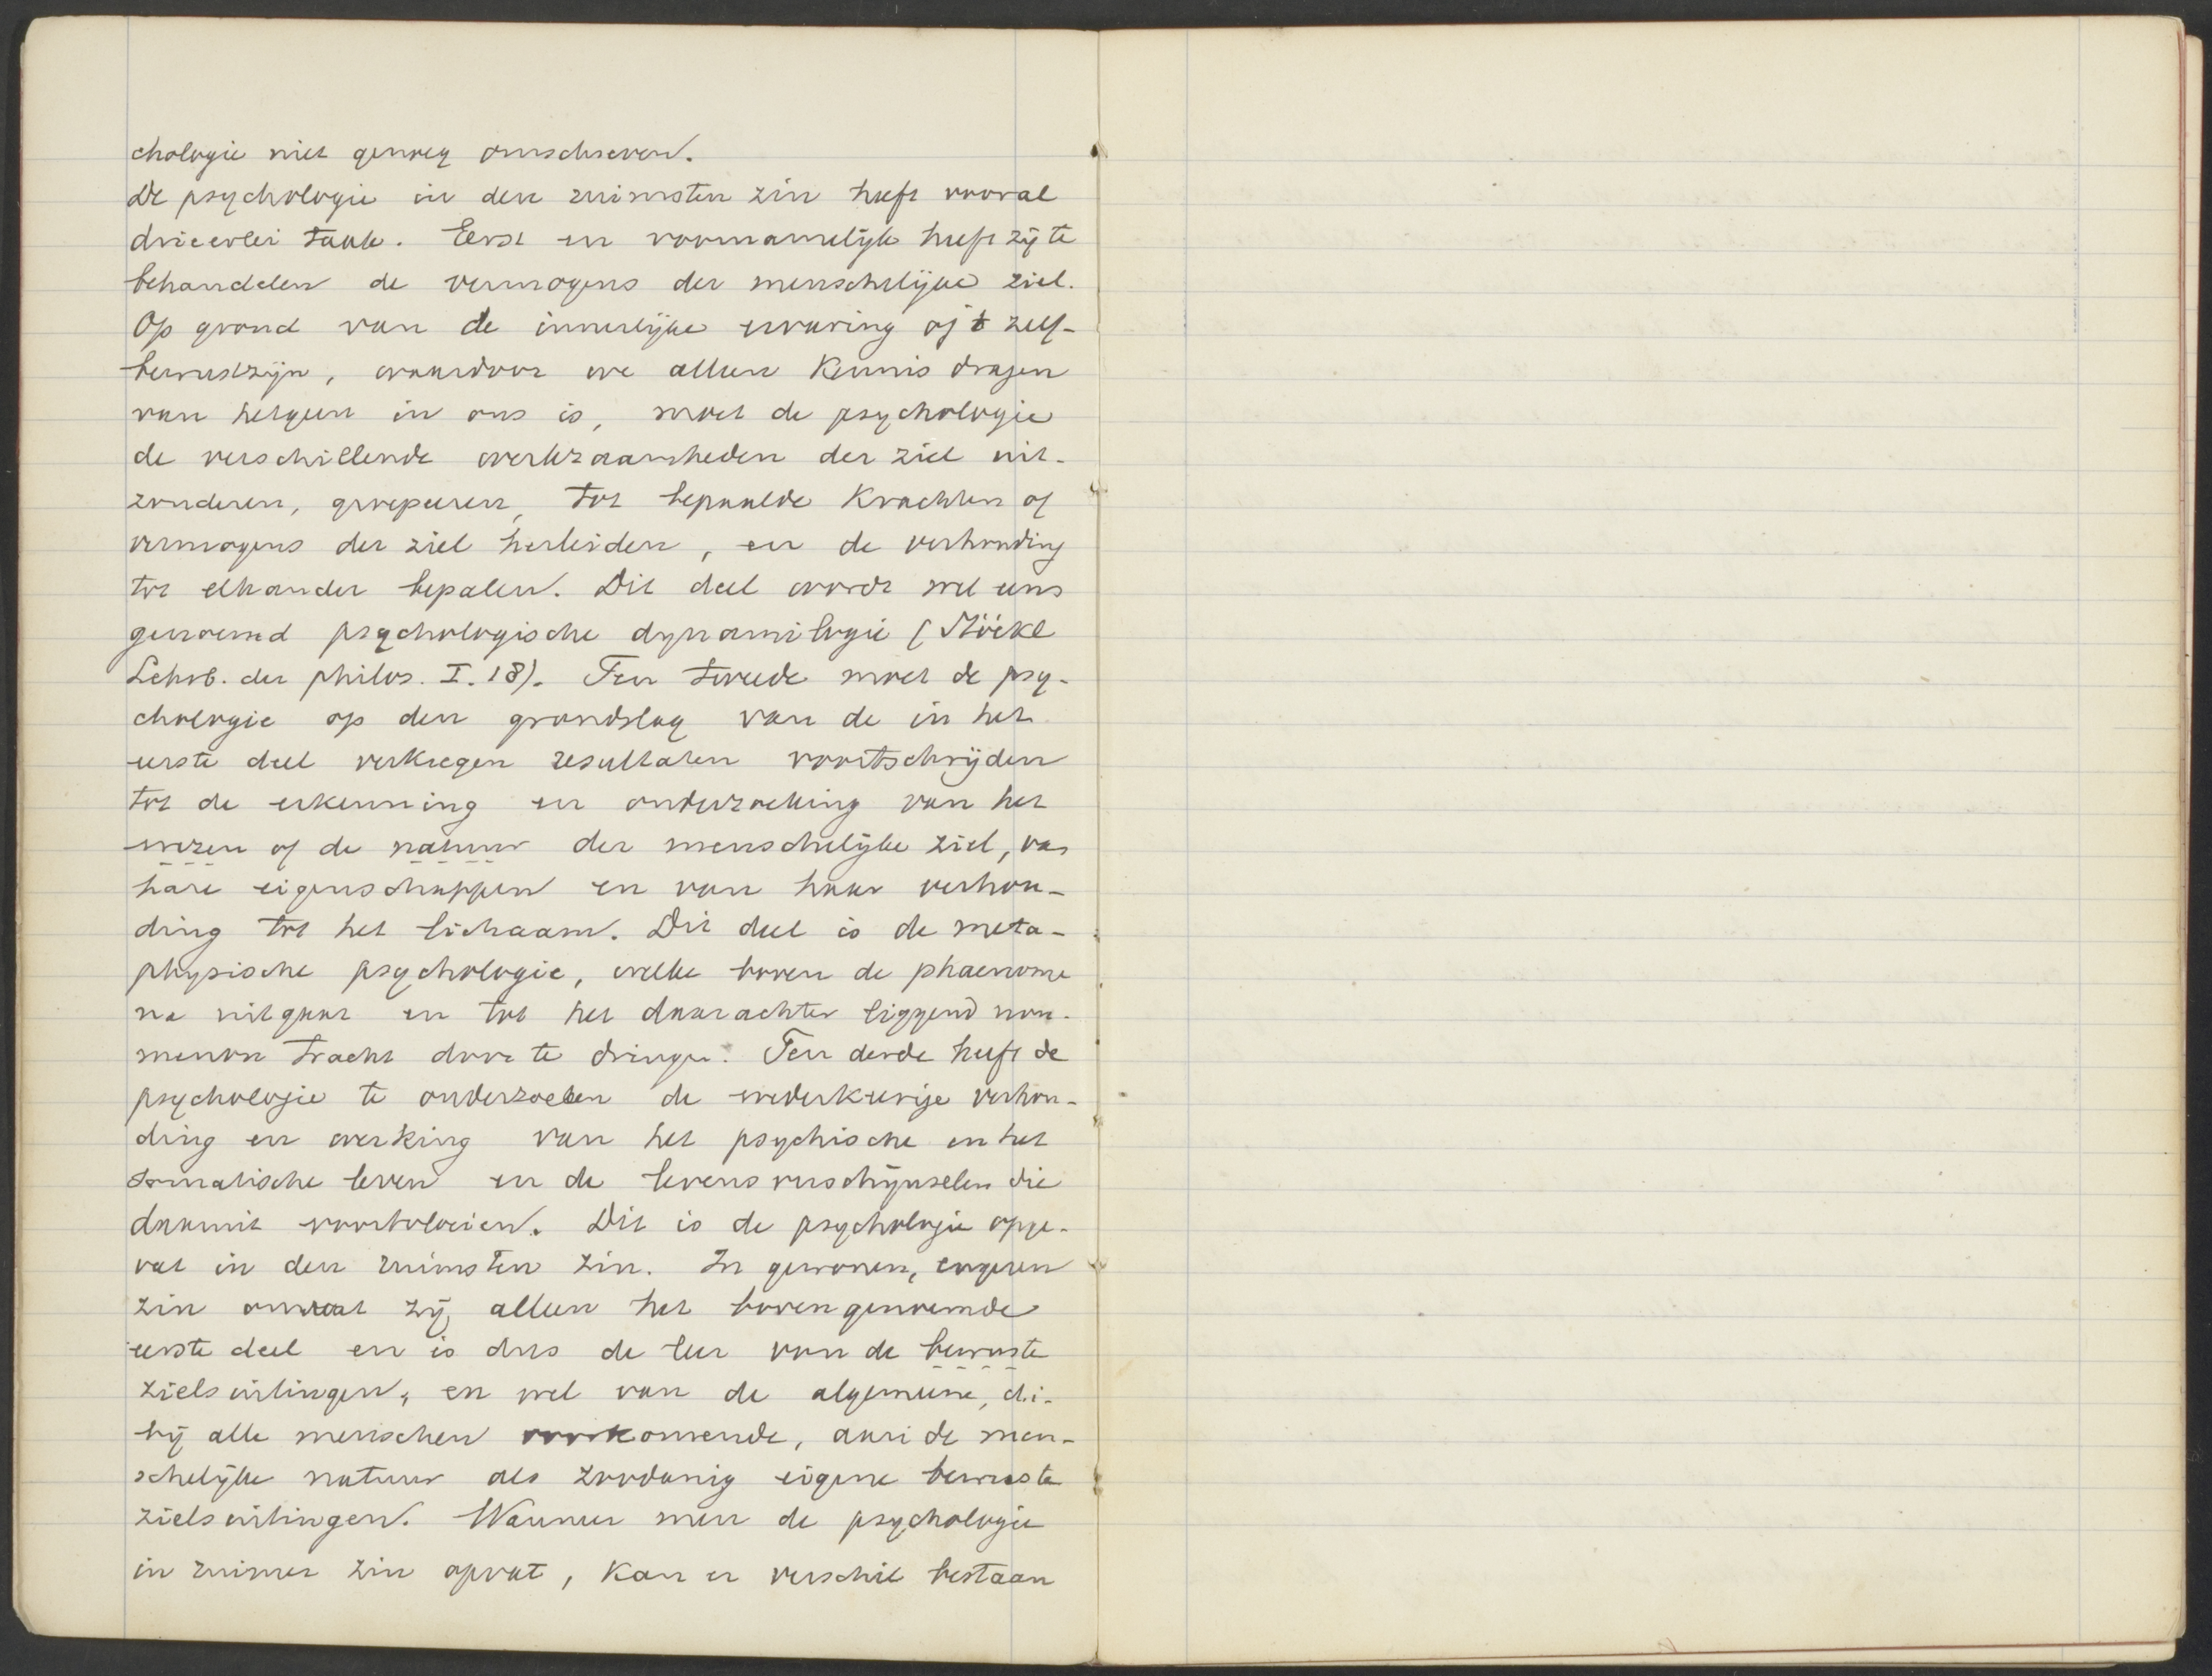 chologie niet genoeg omschreven.
De psychologie in den ruimsten zin heeft vooral
drieerlei taak. Eerst en voornamelijk heeft zij te
behandelen de vermogens der menschelijke ziel.
Op grond van de innerlijke ervaring of 't zelf-
bewustzijn, waardoor we alleen kennis dragen
van hetgeen in ons is, moet de psychologie
de verschillende werkzaamheden der ziel uit-
zonderen, groepeeren, tot bepaalde krachten of
vermogens der ziel herleiden, en de verhouding
tot elkander bepalen. Dit deel wordt wel eens
genoemd psychologische dynamilogie (Stöckl
Lehrb. der philos. I. 18). Ten tweede moet de psy-
chologie op den grondslag van de in het
eerste deel verkregen resultaten voortschrijden
tot de erkenning en onderzoeking van het
wezen of de natuur der menschelijke ziel, van
hare eigenschappen en van haar verhou-
ding tot het lichaam. Dit deel is de meta-
physische psychologie, welke boven de phaenome
na uitgaat en tot het daarachter liggend nou-
menon tracht door te dringen. Ten derde heeft de
psychologie te onderzoeken de wederkeerige verhou-
ding en werking van het psychische en het
somatische leven en de levensverschijnselen die
daaruit voortvloeien. Dit is de psychologie opge-
vat in den ruimsten zin. In gewonen, engeren
zin omvat zij alleen het bovengenoemde
eerste deel en is dus de leer van de bewuste
zielsuitingen, en wel van de algemeene, d.i.
bij alle menschen voorkomende, aan de men-
schelijke natuur als zoodanig eigene bewuste
zielsuitingen. Wanneer men de psychologie
in ruimer zin opvat, kan er verschil bestaan